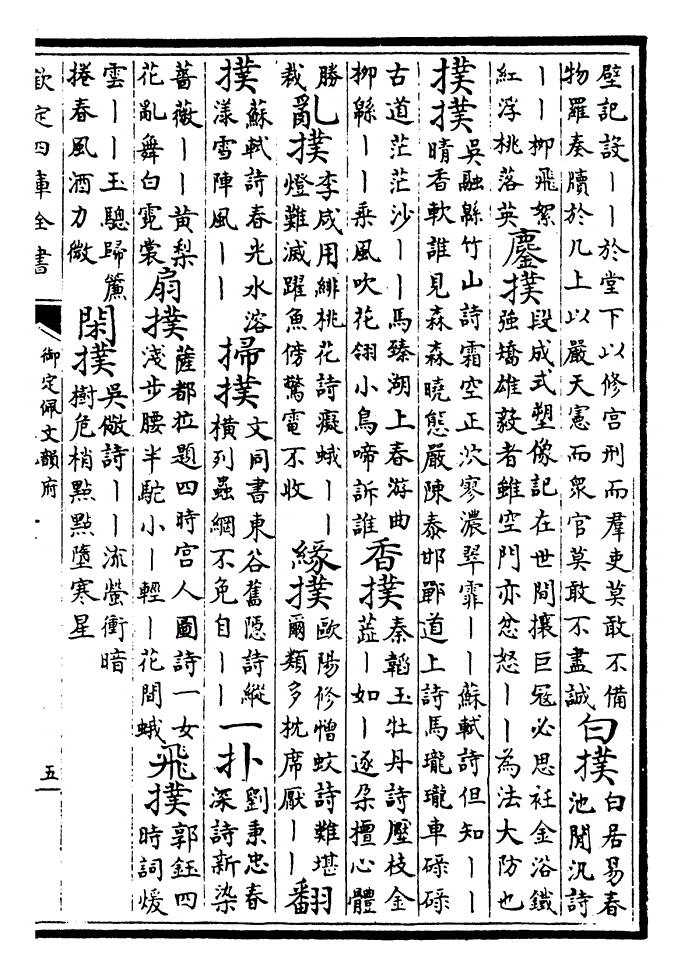 壁記設丨丨於堂下以修宮刑而羣吏莫敢不備
物羅奏牘於几上以嚴天憲而衆官莫敢不盡誠
白撲
白居易春
池閒汎詩
丨丨柳飛絮
紅浮桃落英
鏖撲
段成式塑像記在世間攘巨冠必思衽金浴鐵
強矯雄毅者雖空門亦忿怒丨丨為法大防也
撲撲
吳融緜竹山詩霜空正泬寥濃翠霏丨丨蘇軾詩但知丨丨
晴香軟誰見森森曉態嚴陳泰邯鄲道上詩馬瓏瓏車碌碌
古道茫茫沙丨丨馬臻湖上春游曲
柳緜丨丨乘風吹花翎小鳥啼訴誰
香撲
秦韜玉牡丹詩壓枝金
蕋丨如丨逐朵檀心體
勝
裁
亂撲
李咸用緋桃花詩癡蛾丨丨
燈難滅躍魚傍驚電不收
緣撲
歐陽修憎蚊詩難堪
爾類多枕席厭丨丨
翻
撲
蘇軾詩春光水溶
漾雪陣風丨丨
掃撲
文同書東谷舊隱詩縱
橫列蟲網不免自丨丨
一扑
劉秉忠春
深詩新染
薔薇丨丨黃梨
花亂舞白霓裳
扇撲
薩都拉題四時宮人圖詩一女
淺步腰半駝小丨輕丨花間蛾
飛撲
郭鈺四
時詞煖
雲丨丨玉驄歸簾
捲春風酒力微
閑撲
吳儆詩丨丨流螢衝暗
樹危梢點點墮寒星
欽定四庫全書
御定佩文韻府
五